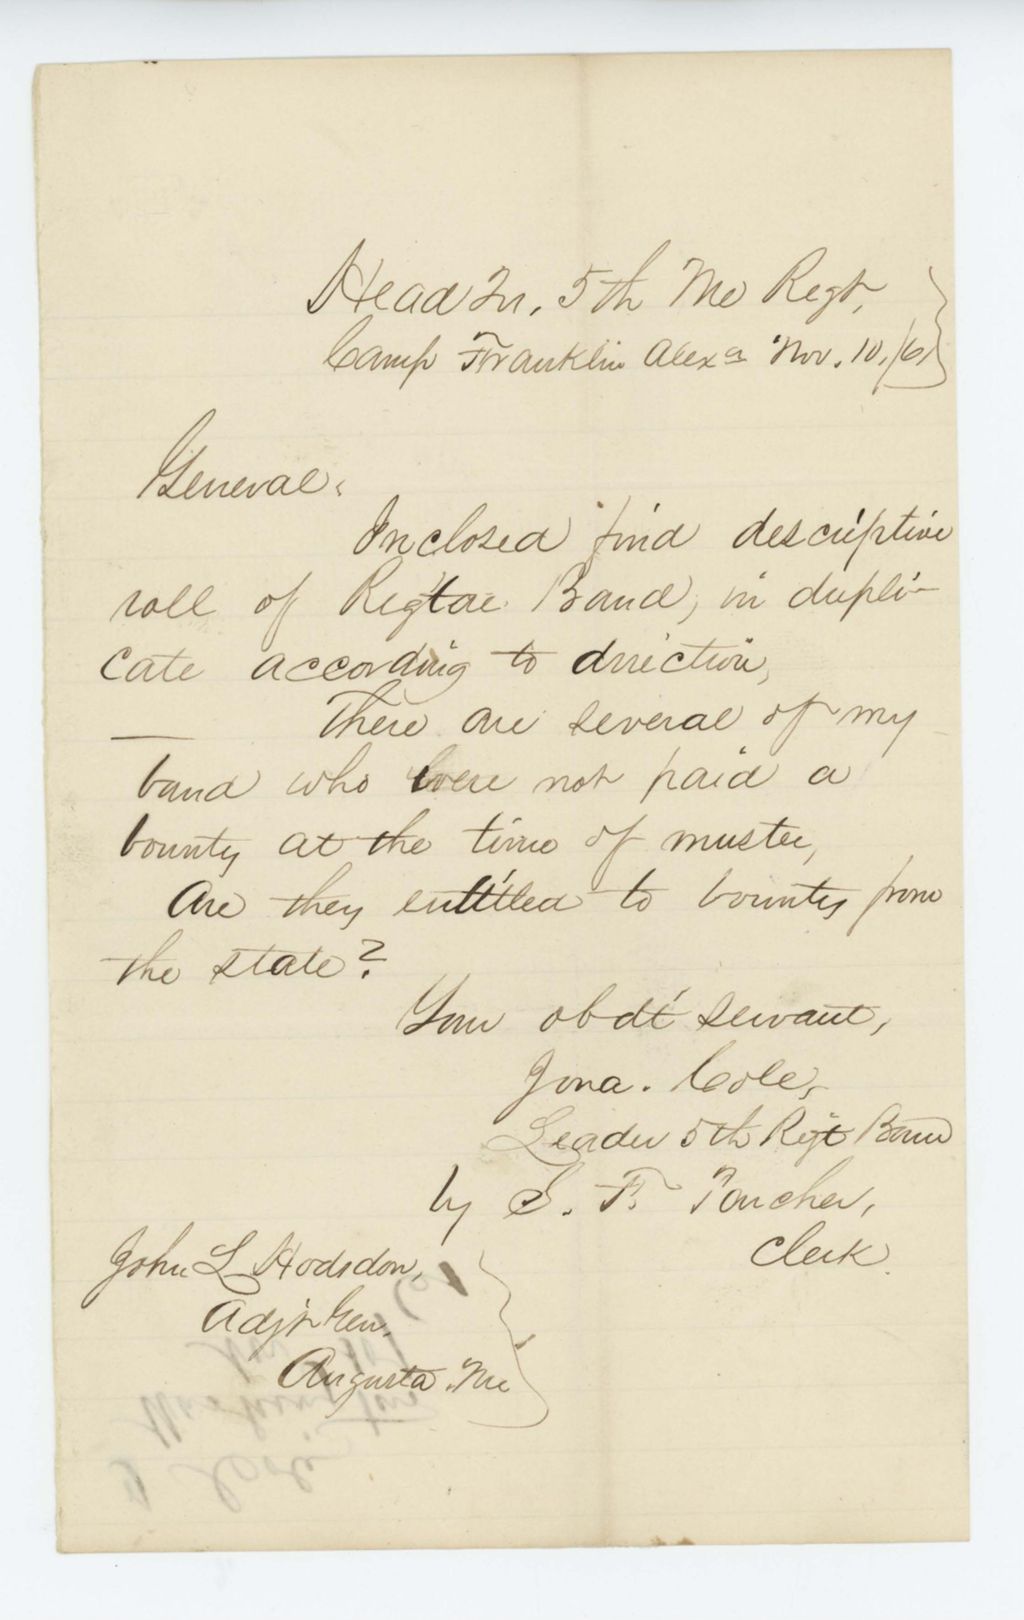 Head Qr. 5th Me Regt,
Camp Franklin Alexa Nov. 10, /61
General,
Inclosed find descriptive
roll of Regtal Band, in dupli-
cate according to direction,
There are several of my
band who were not paid a
bounty at the time of muster,
Are they entitled to bounty from
the state?
Your obdt servant,
Jona. Cole,
Leader 5th Regt Band
by S. F.
Clerk.
John L Hodsdon,
Adjt Gen.
Augusta. Me